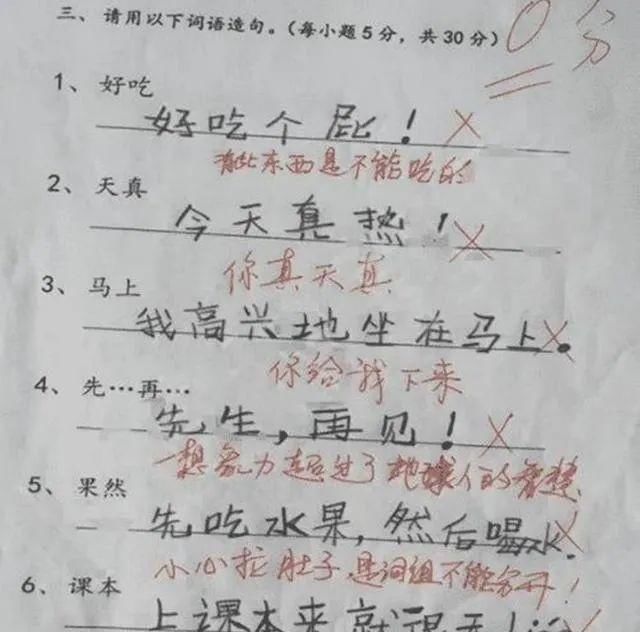 三、请用以下词语造句。(每小题5分，共30分) 0分
1、好吃
好吃个屁！
有些东西是不能吃的
2、天真
今天真热！
你真天真
3、马上
我高兴地坐在马上。
你给我下来
4、先…再…
先生，再见！
想象力超过了地球人的智慧
5、果然
先吃水果，然后喝水.
小心拉肚子，是词组不能分开！
6、课本
上课本来就很无